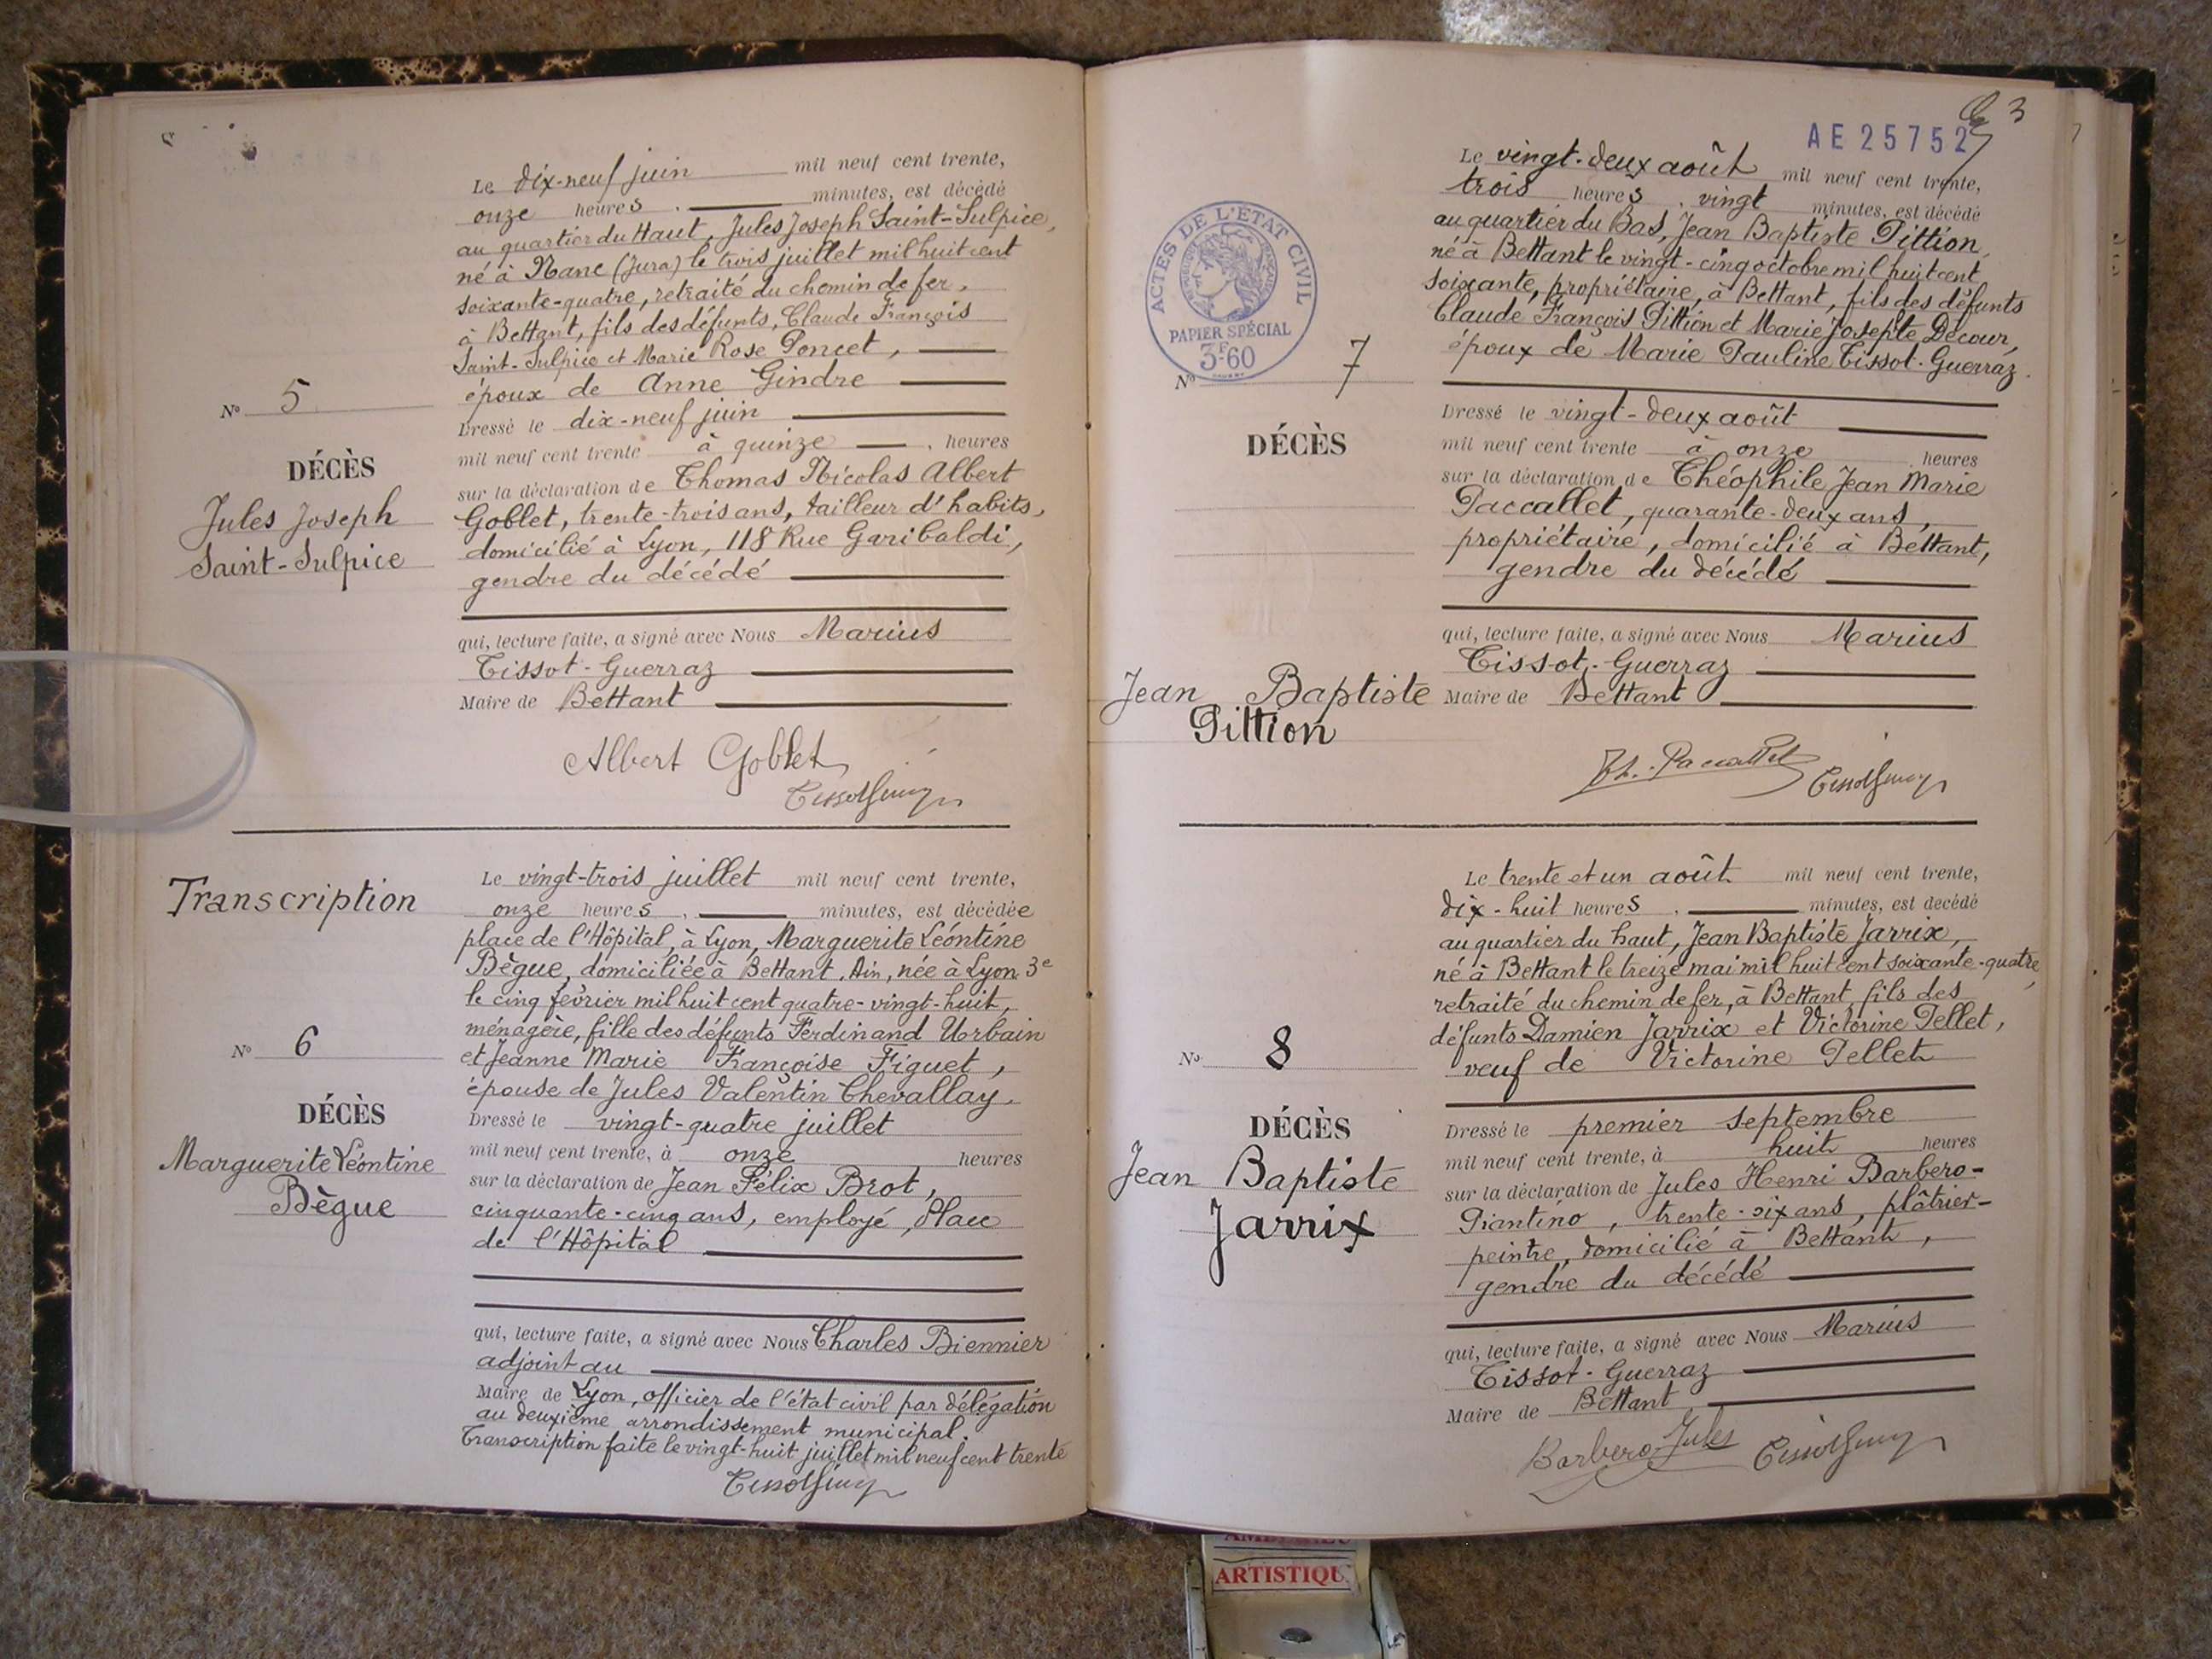 Le dix-neuf juin mil neuf cent trente,
onze heures . minutes, est décédé
au quartier du Haut, Jules Joseph Saint-Sulpice,
né à Nanc (Jura) le trois juillet mil huit cent
soixante-quatre, retraité du chemin de fer,
à Bettant, fils des défunts, Claude François
Saint-Sulpice et Marie Rose Poncet,
époux de Anne Gindre
Dressé le dix-neuf juin
mil neuf cent trente à quinze . heures
sur la déclaration de Thomas Nicolas Albert
Goblet, trente-trois ans, tailleur d'habits,
domicilié à Lyon, 118 Rue Garibaldi,
gendre du décédé
qui, lecture faite, a signé avec Nous Marius
Tissot-Guerraz
Maire de Bettant
Albert Goblet
N° 5
DÉCÈS
Jules Joseph
Saint-Sulpice
Transcription
N° 6
DÉCÈS
Marguerite Léontine
Bègue
Le vingt-trois juillet mil neuf cent trente,
onze heures . minutes, est décédée
place de l'Hôpital, à Lyon, Marguerite Léontine
Bègue, domiciliée à Bettant, Ain, née à Lyon 3e
le cinq février mil huit cent quatre-vingt-huit,
ménagère, fille des défunts Ferdinand Urbain
et Jeanne Marie Françoise Figuet,
épouse de Jules Valentin Chevallay.
Dressé le vingt-quatre juillet
mil neuf cent trente, à onze heures
sur la déclaration de Jean Félix Brot,
cinquante-cinq ans, employé, Place
de l'Hôpital
qui, lecture faite, a signé avec Nous Charles Biennier
adjoint au
Maire de Lyon, officier de l'état civil par délégation
au deuxième arrondissement municipal.
Transcription faite le vingt-huit juillet mil neuf cent trente
3
AE 25752
ACTES DE L'ÉTAT CIVIL
PAPIER SPÉCIAL
3F60
N° 7
DÉCÈS
Jean Baptiste
Pittion
Le vingt-deux août mil neuf cent trente,
trois heures . vingt minutes, est décédé
au quartier du Bas, Jean Baptiste Pittion,
né à Bettant le vingt-cinq octobre mil huit cent
soixante, propriétaire, à Bettant, fils des défunts
Claude François Pittion et Marie Josephte Décour,
époux de Marie Pauline Tissot-Guerraz.
Dressé le vingt-deux août
mil neuf cent trente à onze . heures
sur la déclaration de Théophile Jean Marie
Paccallet, quarante-deux ans,
propriétaire, domicilié à Bettant,
gendre du décédé
qui, lecture faite, a signé avec Nous Marius
Tissot-Guerraz
Maire de Bettant
Th. Paccallet
N° 8
DÉCÈS
Jean Baptiste
Jarrix
Le trente et un août mil neuf cent trente,
dix-huit heures . minutes, est décédé
au quartier du haut, Jean Baptiste Jarrix,
né à Bettant le treize mai mil huit cent soixante-quatre,
retraité du chemin de fer, à Bettant, fils des
défunts Damien Jarrix et Victorine Pellet,
veuf de Victorine Pellet
Dressé le premier septembre
mil neuf cent trente, à huit heures
sur la déclaration de Jules Henri Barbero-
Piantino, trente-six ans, plâtrier-
peintre, domicilié à Bettant,
gendre du décédé
qui, lecture faite, a signé avec Nous Marius
Tissot-Guerraz
Maire de Bettant
Barbero Jules
ARTISTIQU